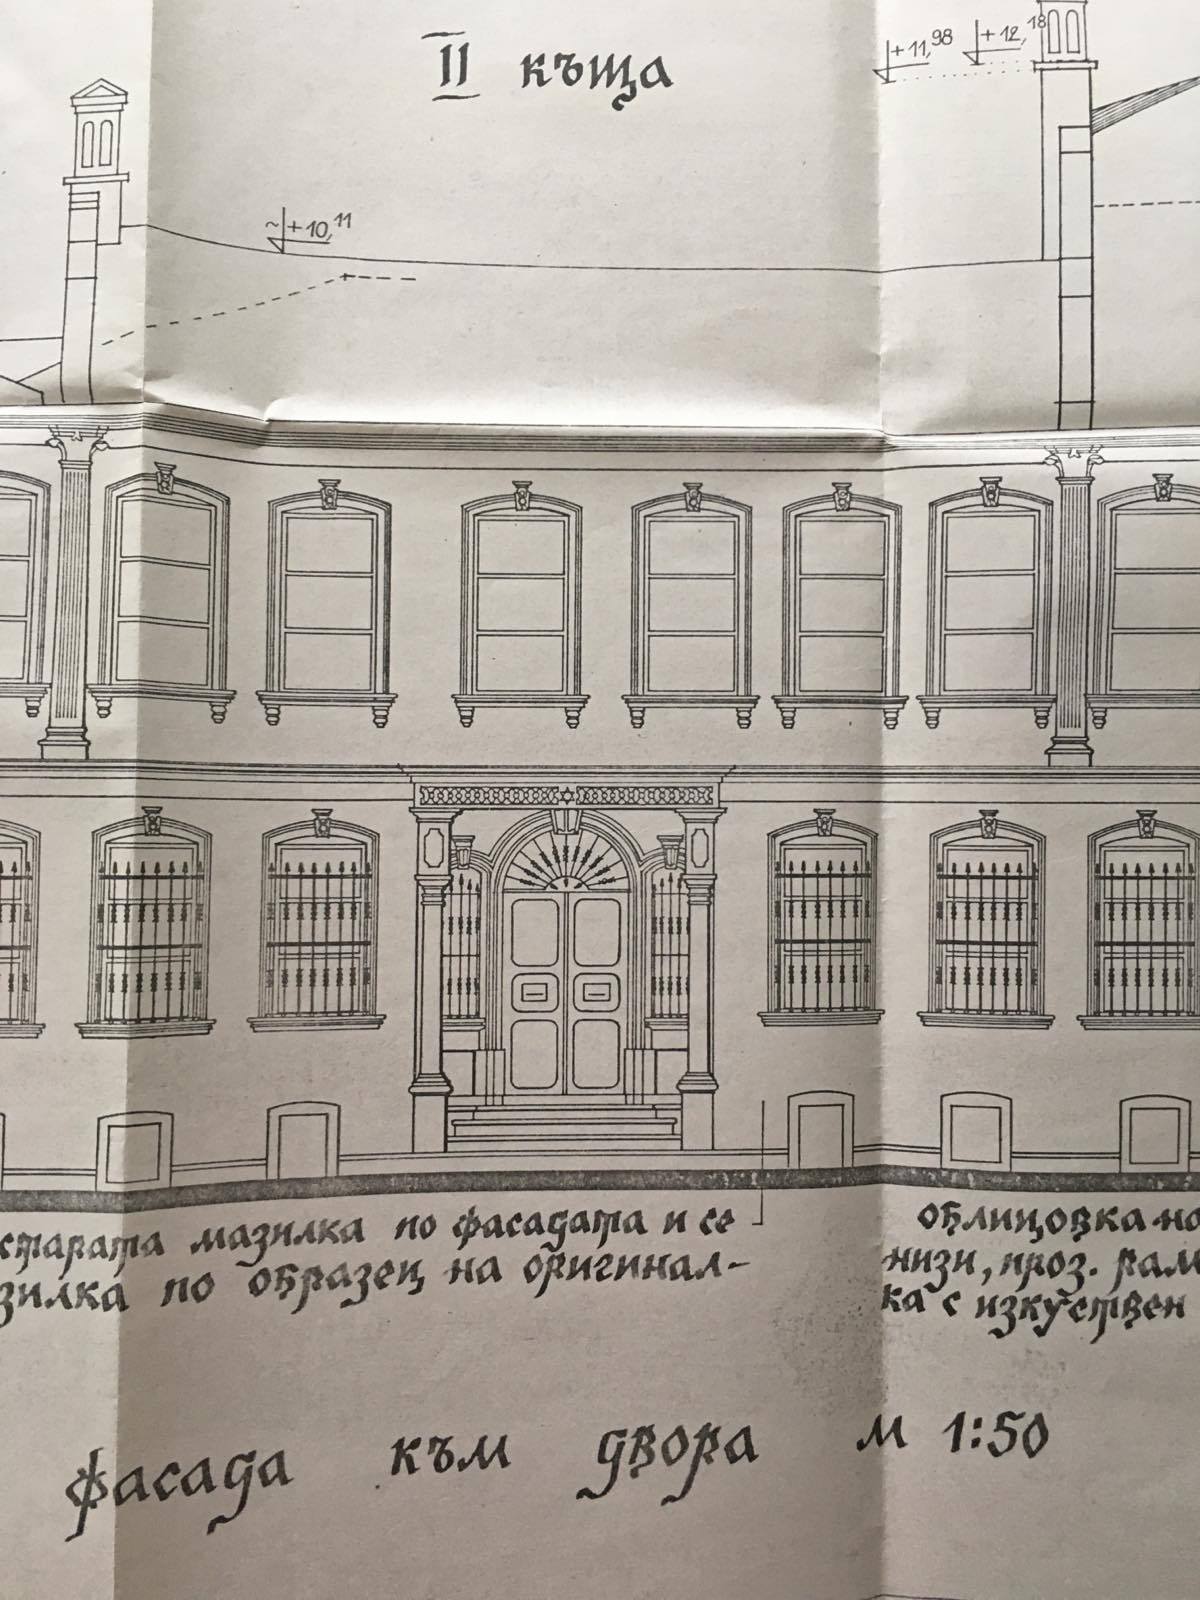 II къща
+11,98
+12,18
~+10,11
старата мазилка по фасадата и се
зилка по образец на оригинал-
облицовка на
низи, проз. рам
ка с изкуствен
фасада към двора м 1:50